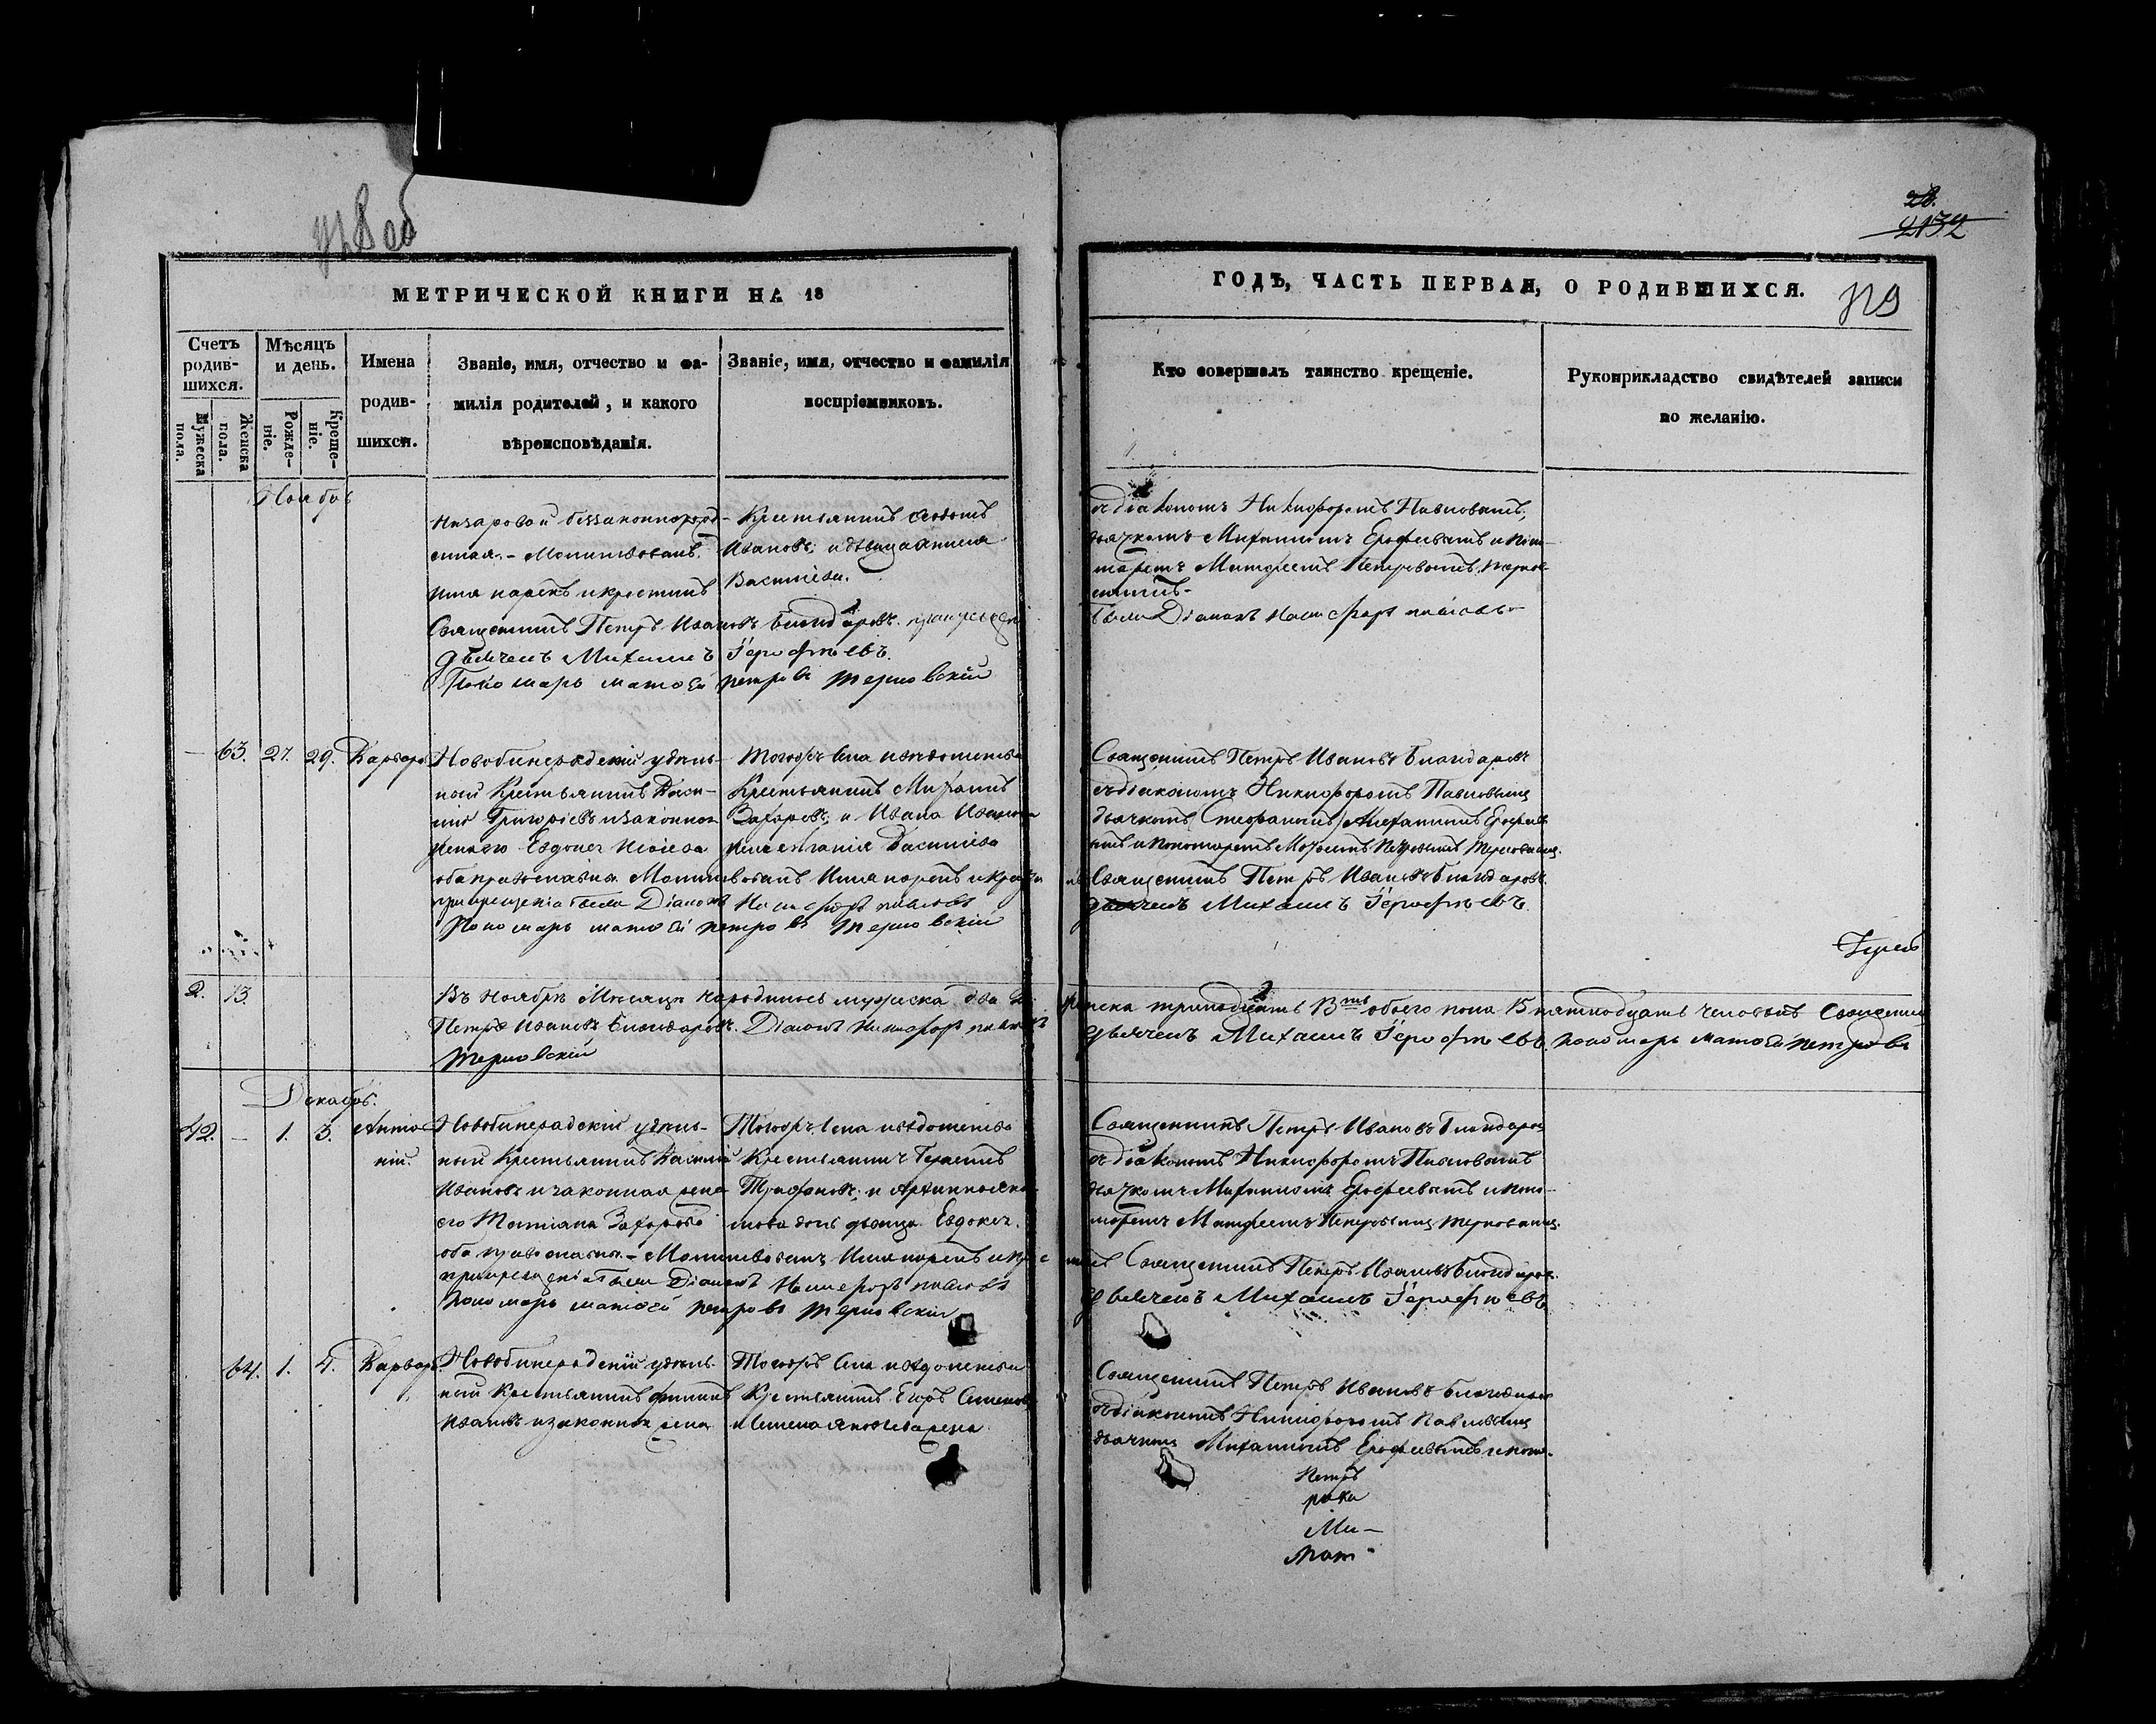 28.
2132
МЕТРИЧЕСКОЙ КНИГИ НА 18
ГОДЪ, ЧАСТЬ ПЕРВАЯ, О РОДИВШИХСЯ.
329
Счетъ родив-шихся.
Мужеска пола.
Женска пола.
Мѣсяцъ и день.
Рожде-ніе.
Креще-ніе.
Имена
родив-
шихся.
Званіе, имя, отчество и фа-
милія родителей, и какого
вѣроисповѣданія.
Званіе, имя, отчество и фамилія
воспріемниковъ.
Кто совершалъ таинство крещеніе.
Рукоприкладство свидѣтелей записи
по желанію.
Ноябрь
Назаровой беззаконнорожд-
енная. - Молитвовалъ
имя нарекъ и крестилъ
Священникъ Петръ Ивановъ
дьячекъ Михаилъ Іерофѣевъ
Пономарь Матѳей Петровъ Терновскій
Крестьянинъ Ѳедотъ
Ивановъ; и дѣвица
Васильева.
съ діакономъ Никифоромъ Павловымъ,
дьячкомъ Михаиломъ Ерофеевымъ и поно-
маремъ Матфеемъ Петровымъ Тернов-
скимъ-
Діаконъ Никифоръ Павловъ
63. 27. 29. Варвара
удѣль-
ный Крестьянинъ Васи-
лій Григорьевъ и законная
жена его Евдокея
оба православны. Молитвовалъ имя нарекъ и крести
при крещеніи были Діаконъ Никифоръ Павловъ
Пономарь Матѳей Петровъ Терновскій
Тогожъ села и вѣдомства
Крестьянинъ Михаилъ
Захаровъ; и Ивана Иванова
жена Васильева
Священникъ Петръ Ивановъ
съ діакономъ Никифоромъ Павловымъ
дьячкомъ Михаиломъ Ерофеев-
ымъ и пономаремъ Матфеемъ Петровымъ Терновскимъ.
лъ Священникъ Петръ Ивановъ
дьячекъ Михаилъ Іерофѣевъ
2. 13.
Въ Ноябрѣ Мѣсяцѣ народилось мужеска два 2. женска тринадцать 13ть обоего пола 15 пятнадцать человѣкъ Священникъ
Петръ Ивановъ Діаконъ Никифоръ Павловъ дьячекъ Михаилъ Іерофѣевъ. Пономарь Матѳей Петровъ
Терновскій
Декабрь.
42. - 1. 3. Анто-
ній.
удѣль-
ный Крестьянинъ Василій
Ивановъ и законная жена
его Татіана Захарова
оба православны. - Молитвовалъ имя нарекъ и кре
при крещеніи были Діаконъ Никифоръ Павловъ
Пономарь Матѳей Петровъ Терновскій
Тогожъ села и вѣдомства
Крестьянинъ
Трифоновъ; и
дочь дѣвица Евдокея.
Священникъ Петръ Ивановъ
съ діакономъ Никифоромъ Павловымъ
дьячкомъ Михаиломъ Ерофеевымъ и поно-
маремъ Матфеемъ Петровымъ Терновскимъ.
Священникъ Петръ Ивановъ
дьячекъ Михаилъ Іерофѣевъ
64. 1. 4. Варвара
удѣль-
ный Крестьянинъ Филипъ
Ивановъ и законная жена
Тогожъ села и вѣдомства
Крестьянинъ Егоръ Семеновъ
Священникъ Петръ Ивановъ
съ діакономъ Никифоромъ Павловымъ
дьячкомъ Михаиломъ Ерофеевымъ и поно-
Петръ
Ми-
Мат-